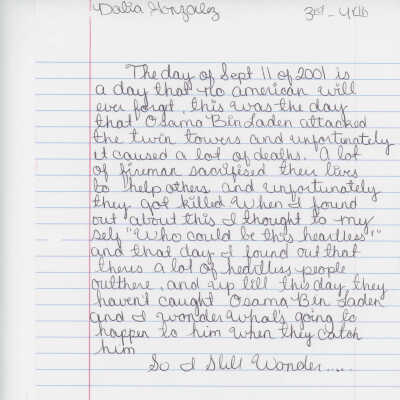 Dalia Gonzalez 3rd-4th
The day of Sept 11 of 2001 is
a day that no american will
ever forget, this was the day
that Osama Bin Laden attacked
the twin towers and unfortunately
it caused a lot of deaths. A lot
of fireman sacrifised their lives
to help others and unfortunately
they got killed When I found
out about this I thought to my
self "Who could be this heartless"
and that day I found out that
theres a lot of heartless people
outthere, and up till this day they
haven't caught Osama Bin Laden
and I wonder whats going to
happen to him when they catch
him
So I Still Wonder.....